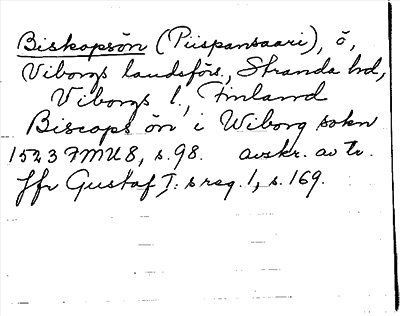 Biskopsön (Piispansaari), ö,
Viborgs landsförs., Stranda hd,
Viborgs l., Finland
Biscops ön i Wiborg sokn
1543 FMU 8, s. 98. avskr. av tr.
Jfr Gustaf I:s reg. 1, s. 169.